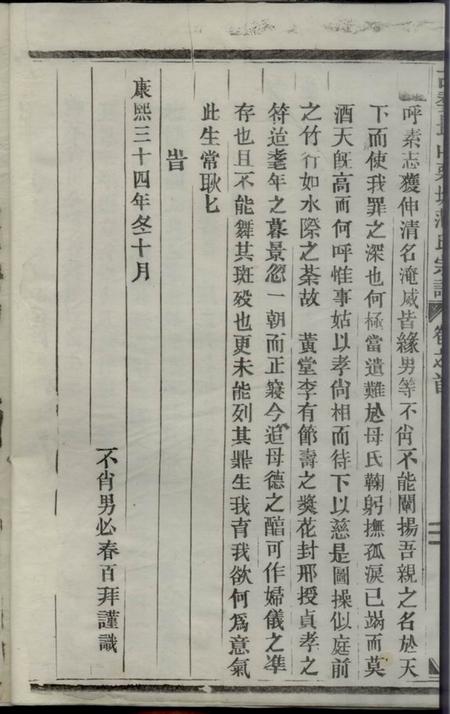 呼素志獲伸清名淹滅皆緣男等不肖不能闡揚吾親之名於天
下而使我罪之深也何極當遺難於母氏鞠躬撫孤淚已竭而莫
酒天旣高而何呼惟事姑以孝尙相而待下以慈是圖操似庭前
之竹行如水際之荼故 黃堂李有節壽之獎花封邢授貞孝之
符迨耄年之暮景忽一朝而正寢今追母德之醕可作婦儀之凖
存也且不能舞其斑殁也更未能列其鼎生我育我欲何爲意氣
此生常耿匕
旹
康熙三十四年冬十月
不肖男必春百拜謹識